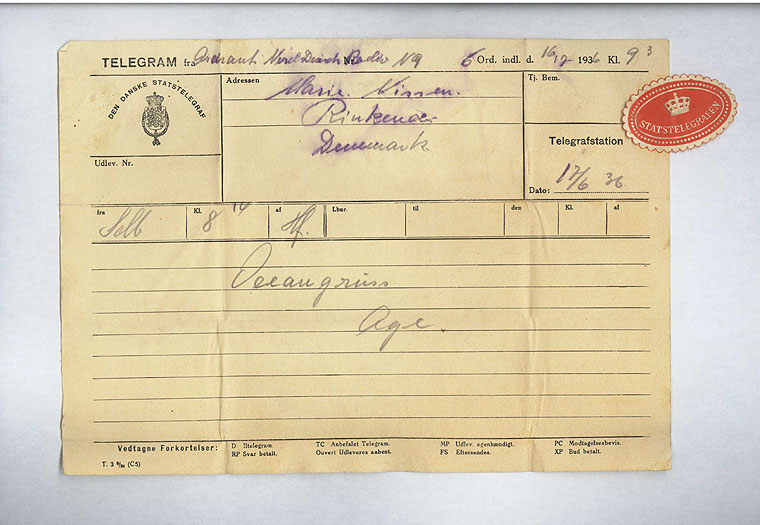 TELEGRAM fra Nord Deich Radio Nr. 6 Ord. indl. d. 16/17 1936 Kl. 9 3
DEN DANSKE STATSTELEGRAF
Udlev. Nr.
Adressen
Marie. Nissen.
Rinkenæs
Denemark
Tj. Bem.
STATSTELEGRAFEN
Telegrafstation
Dato: 17/6 36
fra Kl. 8 14 af Lbnr. til den Kl. af
Oceangruss
Age.
Vedtagne Forkortelser: D Iltelegram. TC Anbefalet Telegram. MP Udlev. egenhændigt. PC Modtagelsesbevis.
RP Svar betalt. Ouvert Udleveres aabent. FS Eftersendes. XP Bud betalt.
T. 3 (C5)